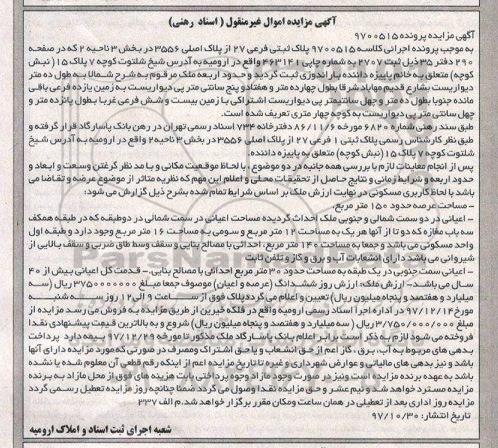 آگهی مزایده اموال غیرمنقول ( اسناد رهنی)
آگهی مزایده پرونده ۹۷۰۰۵۱۵
به موجب پرونده اجرائی کلاسه ۹۷۰۰۵۱۵ پلاک ثبتی فرعی ۲۷ از پلاک اصلی ۳۵۵۶ در بخش ۳ ناحیه ۲ که در صفحه
۲۹۰ دفتر ۳۵ ذیل ثبت ۲۷۰۷ به شماره چاپی ۴۶۳۱۴۱ واقع در ارومیه به آدرس شیخ شلتوت کوچه ۷ پلاک ۱۵ ( نبش
کوچه) متعلق به خانم پاییزه داننده براز اندوزی ثبت گردید و حدود اربعه ملک مرقوم به شرح شمالا به طول ده متر
دیواریست بشارع قدیم مهاباد شرقا بطول چهارده متر و هفتاد و پنج سانتی متر پی دیواریست به زمین یازده فرعی باقی
مانده جنوبا بطول ده متر و چهل سانتیمتر پی دیواریست اشتراکی با زمین بیست و شش فرعی غربا بطول پانزده متر و
چهل سانتی متر پی دیواریست به کوچه چهار متری تعریف شده است.
طبق سند رهنی شماره ۶۸۲۰ مورخه ۸۶/۱۱/۶ دفترخانه ۷۳۴ اسناد رسمی تهران در رهن بانک پاسارگاد قرار گرفته و
طبق نظر کارشناس رسمی پلاک ثبتی ۱ فرعی ۲۷ از پلاک اصلی ۳۵۵۶ در بخش ۳ ناحیه ۲ واقع در ارومیه به آدرس شیخ
شلتوت کوچه ۷ پلاک ۱۵ (نبش کوچه) متعلق به پاییزه داننده.
پس از انجام معاینات لازم با بررسی همه جانبه در دو موضوع ، با لحاظ موقعیت مکانی و با مد نظر گرفتن وسعت و ابعاد و
حدود اربعه و شرایط زمانی و نتایج حاصل از تحقیقات محلی و اعلام این مهم که نظریه متاثر از موضوع عرضه و تقاضا می
باشد با لحاظ کاربری مسکونی در نهایت ارزش ملک بر اساس شرایط تمام شده بشرح ذیل گزارش می شود:
- مساحت عرصه حدود ۱۵۰ متر مربع.
- اعیانی در دو سمت شمالی و جنوبی ملک احداث گردیده مساحت اعیانی در سمت شمالی در دوطبقه که در طبقه همکف
سه باب مغازه که دو تا از آنها هر یک به مساحت ۱۲ متر مربع و سومی به مساحت ۱۶ متر مربع وجود دارد و طبقه اول
واحد مسکونی می باشد و جمعا به مساحت ۱۴۰ متر مربع، احداثی با مصالح بنایی و سقف وسط طاق ضربی و سقف بالایی از
شیروانی می باشد دارای انشعابات آب و برق و گاز و تلفن ثابت
- اعیانی سمت جنوبی در یک طبقه به مساحت حدود ۳۰ متر مربع احداثی با مصالح بنایی.- قدمت کل اعیانی بیش از ۴۰
سال می باشد.- ارزش ملک: ارزش روز ششدانگ (عرصه و اعیان) موصوف جمعا مبلغ ۳۷۵۰۰۰۰۰۰۰ ریال (سه
میلیارد و هفتصد و پنجاه میلیون ریال) تعیین و اعلام می گردد پلاک فوق از ساعت ۹ الی ۱۲ روز سه شنبه
مورخ ۹۷/۱۲/۱۴ در اداره اجرا اسناد رسمی ارومیه واقع در فلکه خیرین از طریق مزایده به فروش می رسد مزایده از
مبلغ ۳/۷۵۰/۰۰۰/۰۰۰ ریال (سه میلیارد و هفتصد و پنجاه میلیون ریال) شروع و به بالاترین قیمت پیشنهادی نقدا
فروخته می شود لازم به ذکر است برابر اعلام بانک پاسارگاد ملک مذکور تا مورخه بیمه دارد پرداخت
بدهی های مربوط به آب، برق ، گاز اعم از حق انشعاب و یا حق اشتراک و مصرف در صورتی که مورد مزایده دارای آنها
باشد و نیز بدهی های مالیاتی و عوارض شهرداری و غیره تا تاریخ مزایده اعم از اینکه رقم قطعی آن معلوم شده یا نشده
باشد به عهده برنده مزایده است و نیز در صورت وجود مازاد وجوه پرداختی بابت هزینه های فوق از محل مازاد به برنده
مزایده مسترد خواهد شد و نیم عشر و حق مزایده نقدا وصول می گردد ضمنا چنانچه روز مزایده تعطیل رسمی گردد
مزایده روز اداری بعد از تعطیلی در همان ساعت و مکان مقرر برگزار خواهد شد.م الف ۲۳۷
تاریخ انتشار: ۹۷/۱۰/۳۰
شعبه اجرای ثبت اسناد و املاک ارومیه